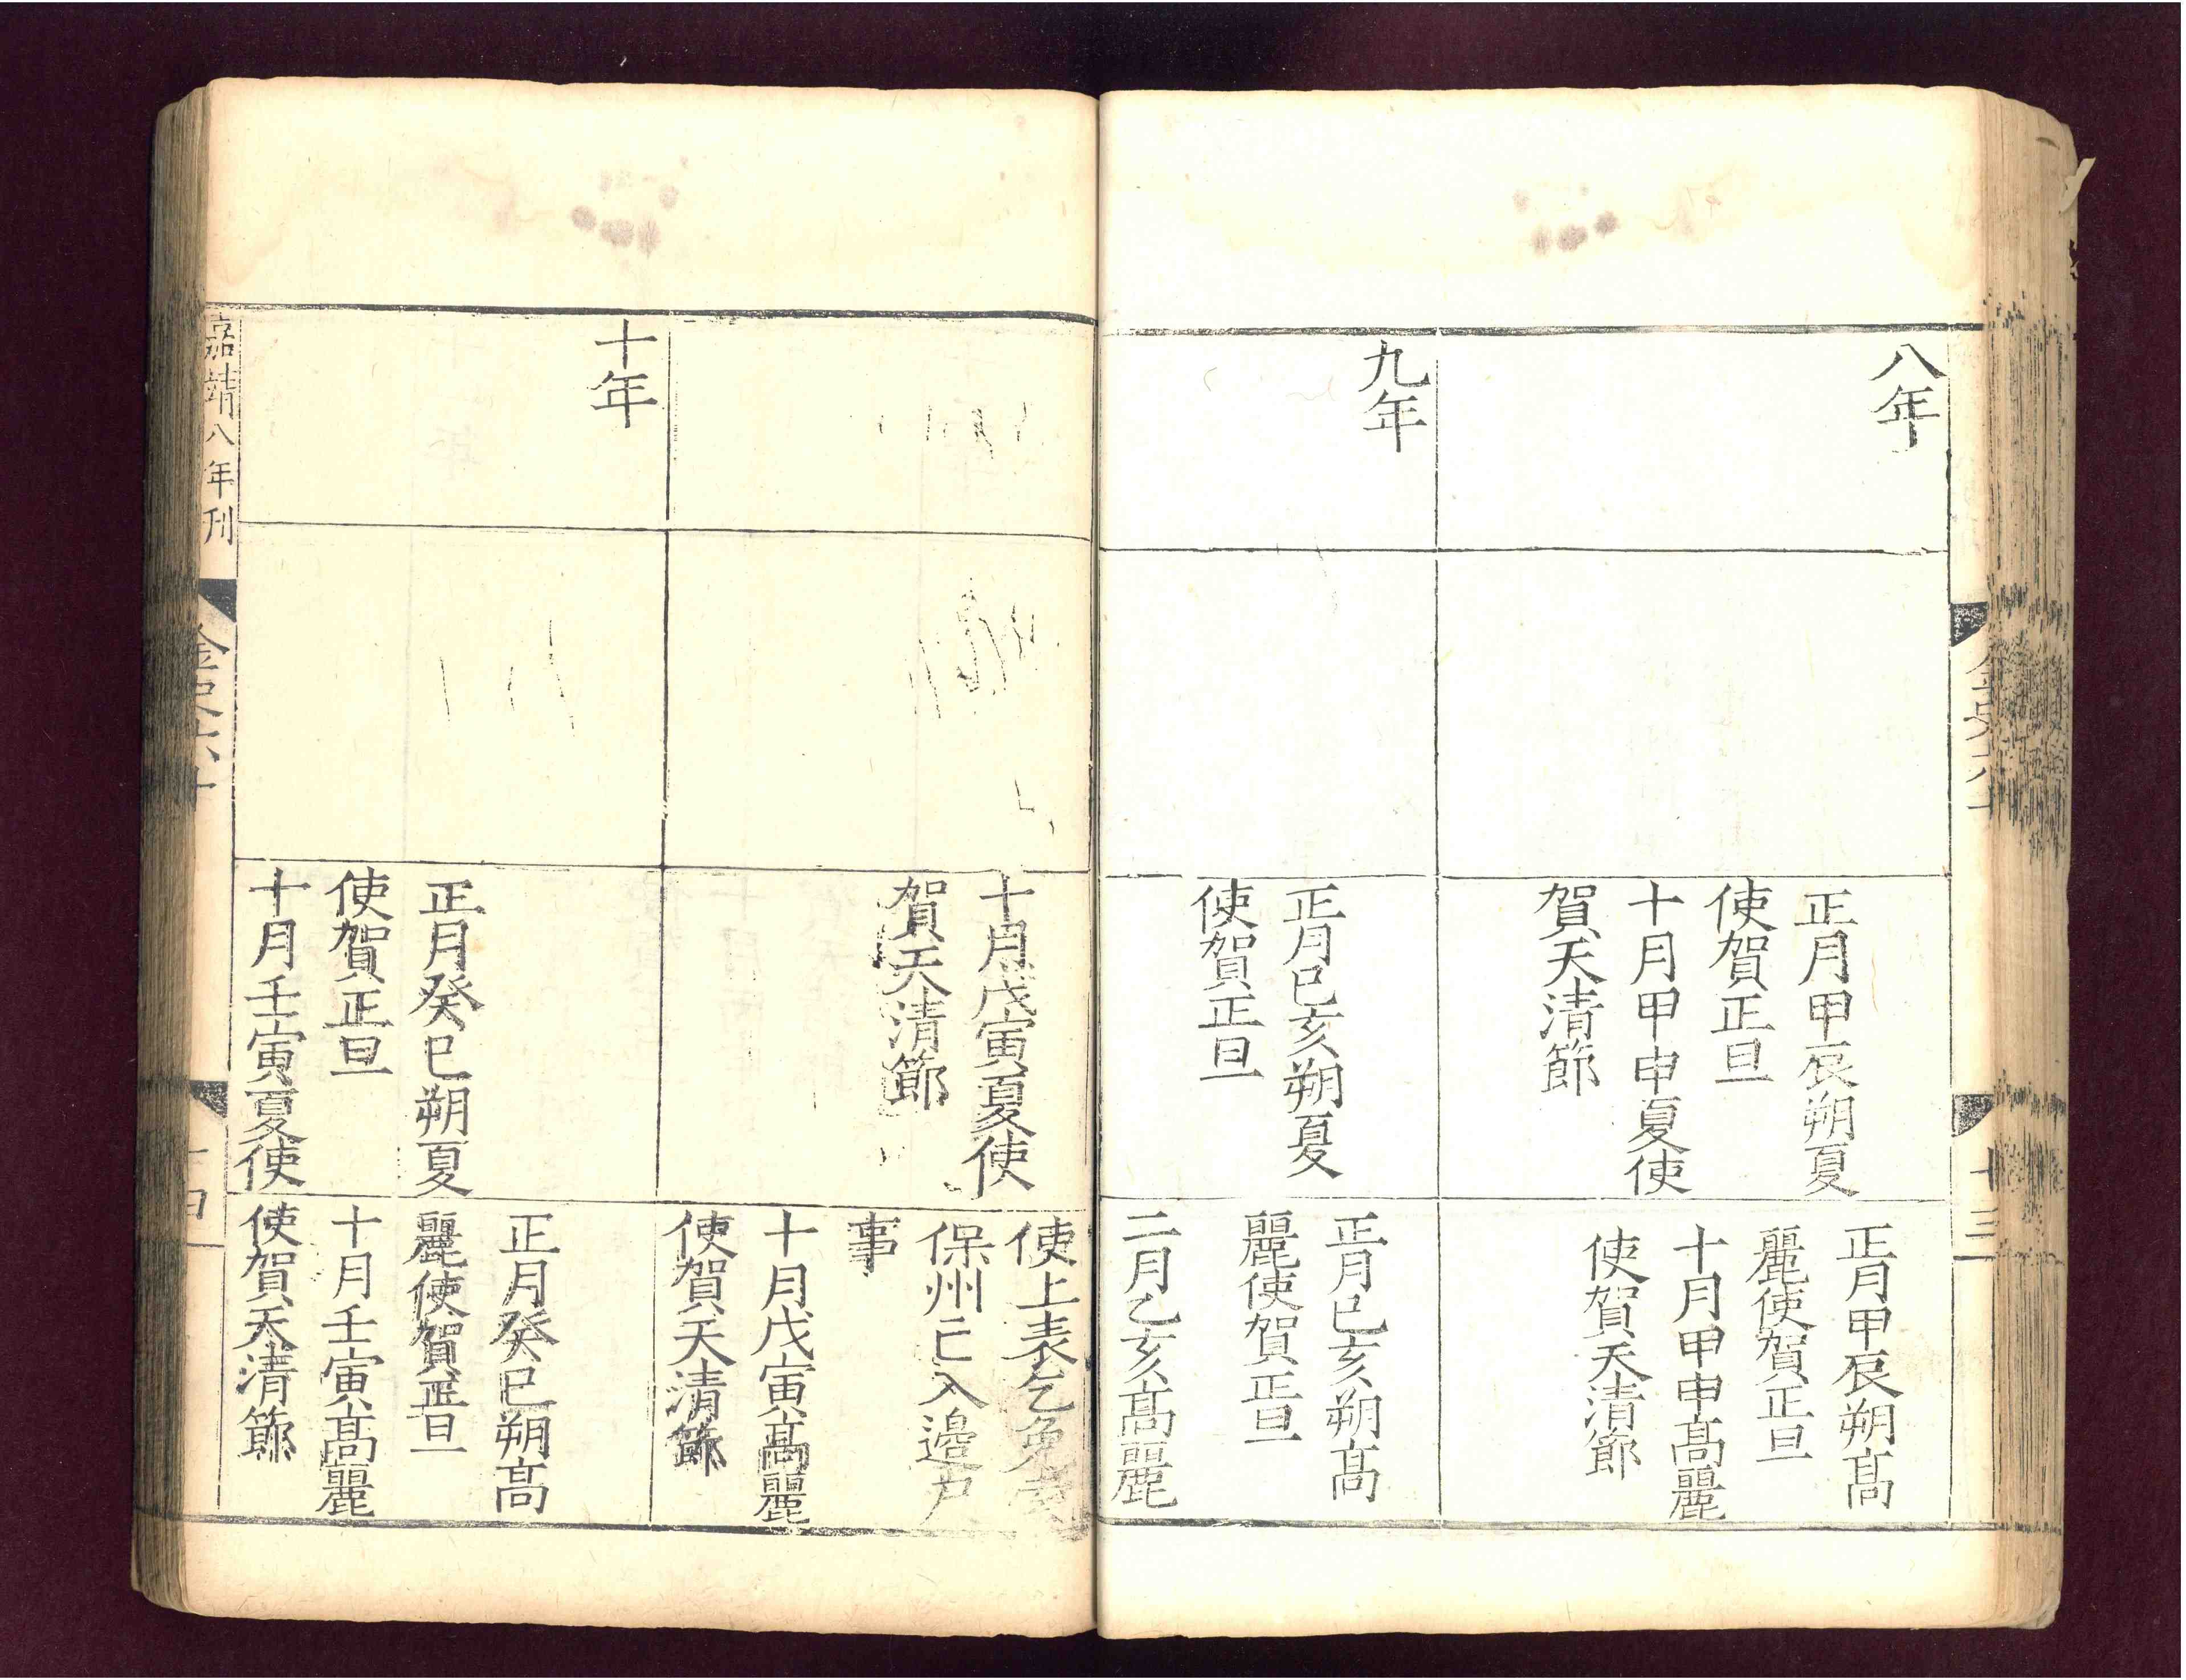 八年
正月甲辰朔夏
使賀正旦
十月甲申夏使
賀天清節
正月甲辰朔高
麗使賀正旦
十月甲申高麗
使賀天清節
九年
正月已亥朔夏
使賀正旦
正月已亥朔高
麗使賀正旦
二月乙亥高麗
十三
十月戊寅夏使
賀天清節
使上表乞免
保州亡入邊户
事
十月戊寅高麗
使賀天清節
十年
正月癸巳朔夏
使賀正旦
十月壬寅夏使
正月癸巳朔高
麗使賀正旦
十月壬寅高麗
使賀天清節
嘉靖八年刊
金史六十